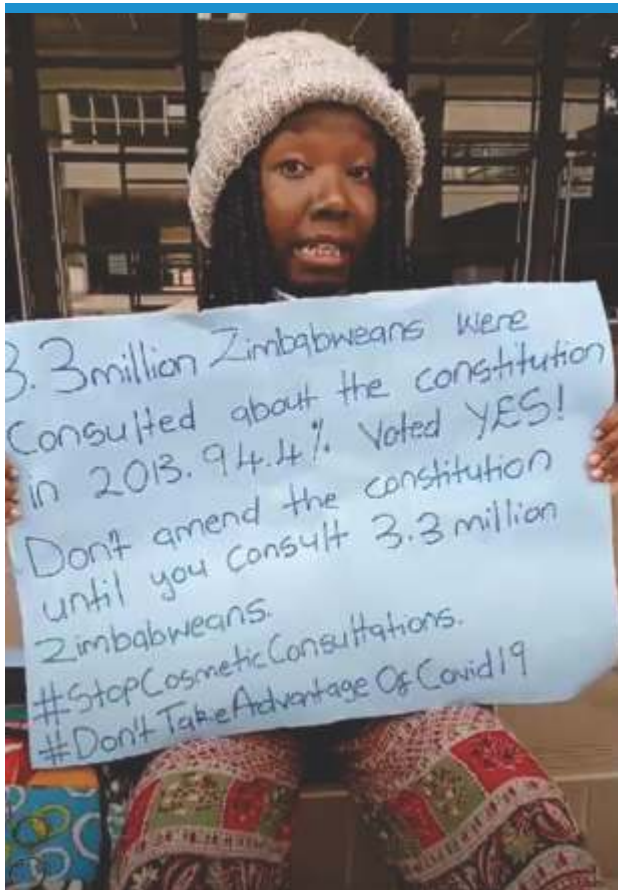 3.3million Zimbabweans were
Consulted about the constitution
in 2013. 94.4% Voted YES!
Don't amend the constitution
until you consult 3.3 million
Zimbabweans.
#StopCosmeticConsultations.
#Don'tTakeAdvantageOfCovid19